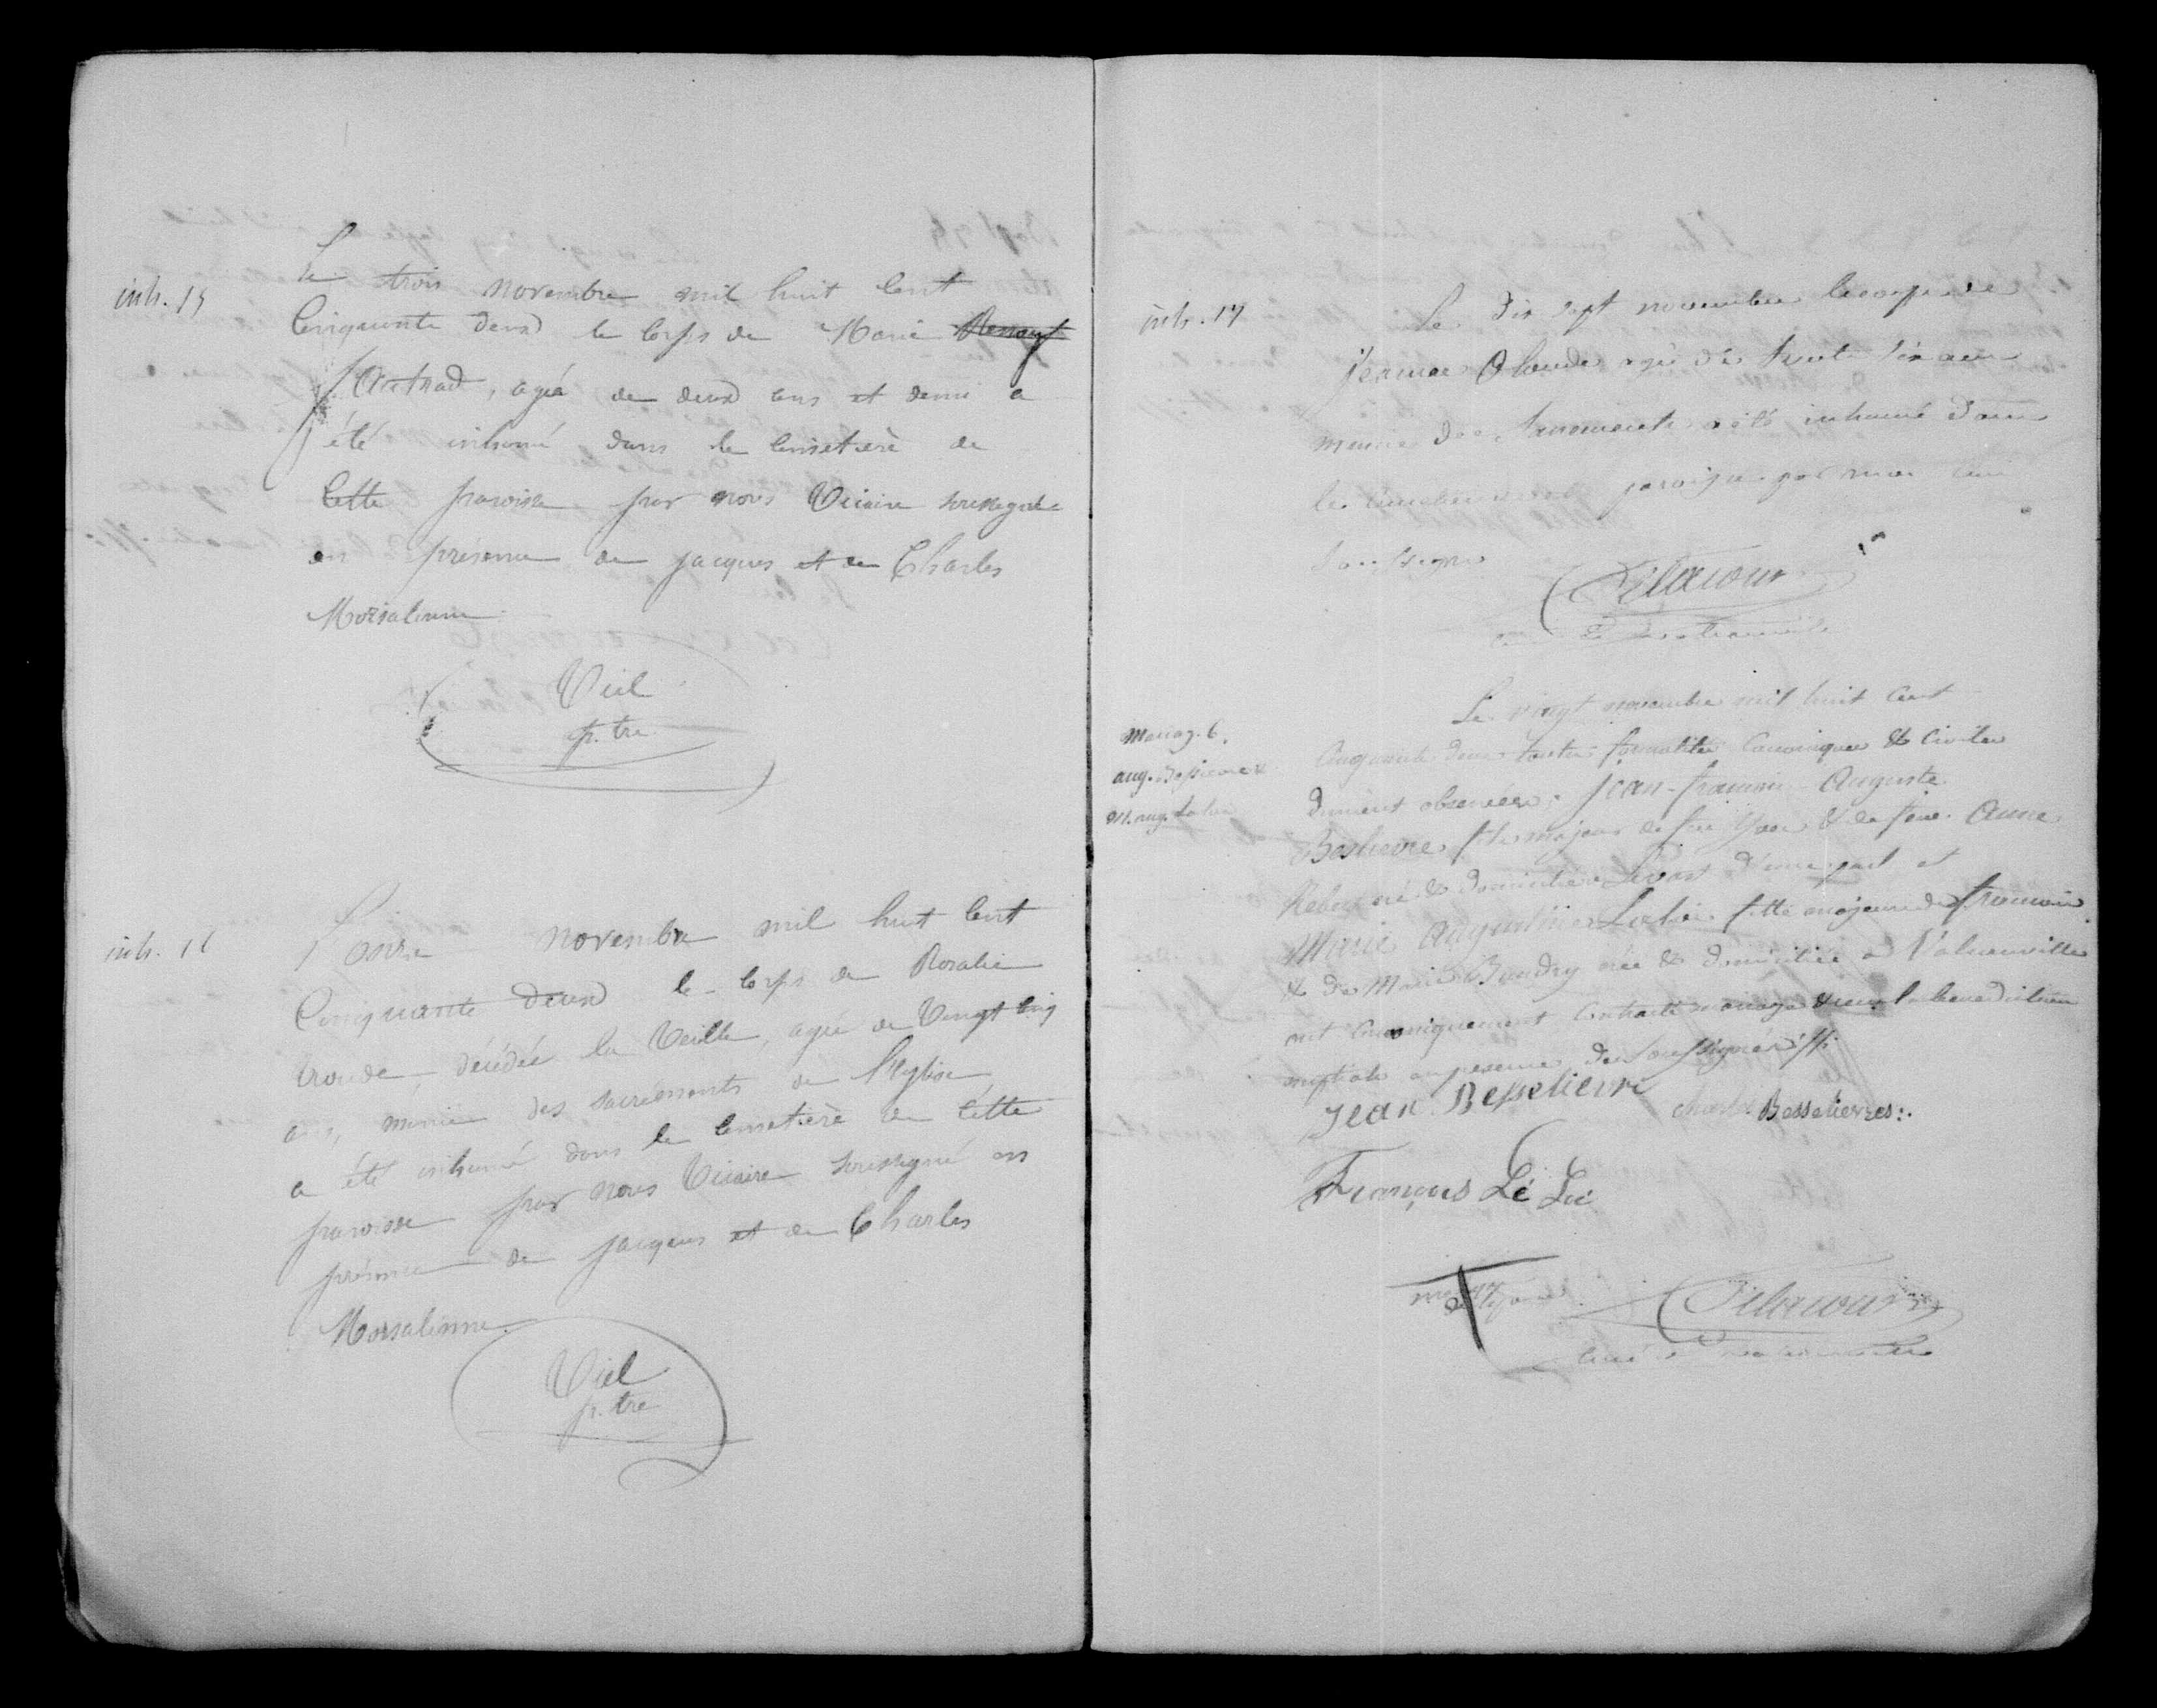 inh. 15
Le trois novembre mil huit Cent
Cinquante deux le Corps de Marie Renouf
Autrad, agée de deux ans et demi a
été inhumé dans le Cimetière de
Cette paroisse par nous Vicaire soussigné
en présence de jacques et de Charles
Morsalinne
Viel
p. tre
inh. 16
L'onze novembre mil huit Cent
Cinquante deux le Corps de Rosalie
troude, décédée la Veille, agée de Vingt Cinq
ans, munie des sacréments de l'Eglise,
a été inhumé dans le Cimetière de Cette
paroisse par nous Vicaire soussigné en
présence de jacques et de Charles
Morsalinne
Viel
p. tre
inh. 17
Le dix sept novembre le corps de
agé de trente six ans
muni des sacrements a été inhumé dans
le cimetière paroisse par moi Curé
Soussigné
Delacour
Mariag. 6.
aug. Besselievre &
M. aug.
Le vingt novembre mil huit Cent
Cinquante deux toutes formalités Canoniques & Civiles
dument observées, jean-francois-Auguste
Beslievre fils majeur de feu & de feue Anne
né & domicilié d'une part et
Marie Augustine fille majeure de francois
& de Marie Baudry née & domiciliée a Valcanville
ont Canoniquement Contracté mariage & reçu la benediction
nuptiale en presence des soussignés
Jean Besselievre
Charles Besselievres:.
François Lé Loé
Delacour
Curé